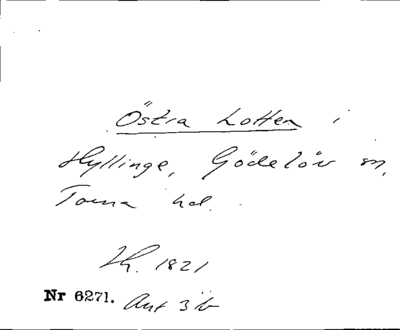 Östra Lotten i
Hyllinge, Gödelöv sn,
Torna hd.
Th. 1821
Nr 6271. Avt 3 kv